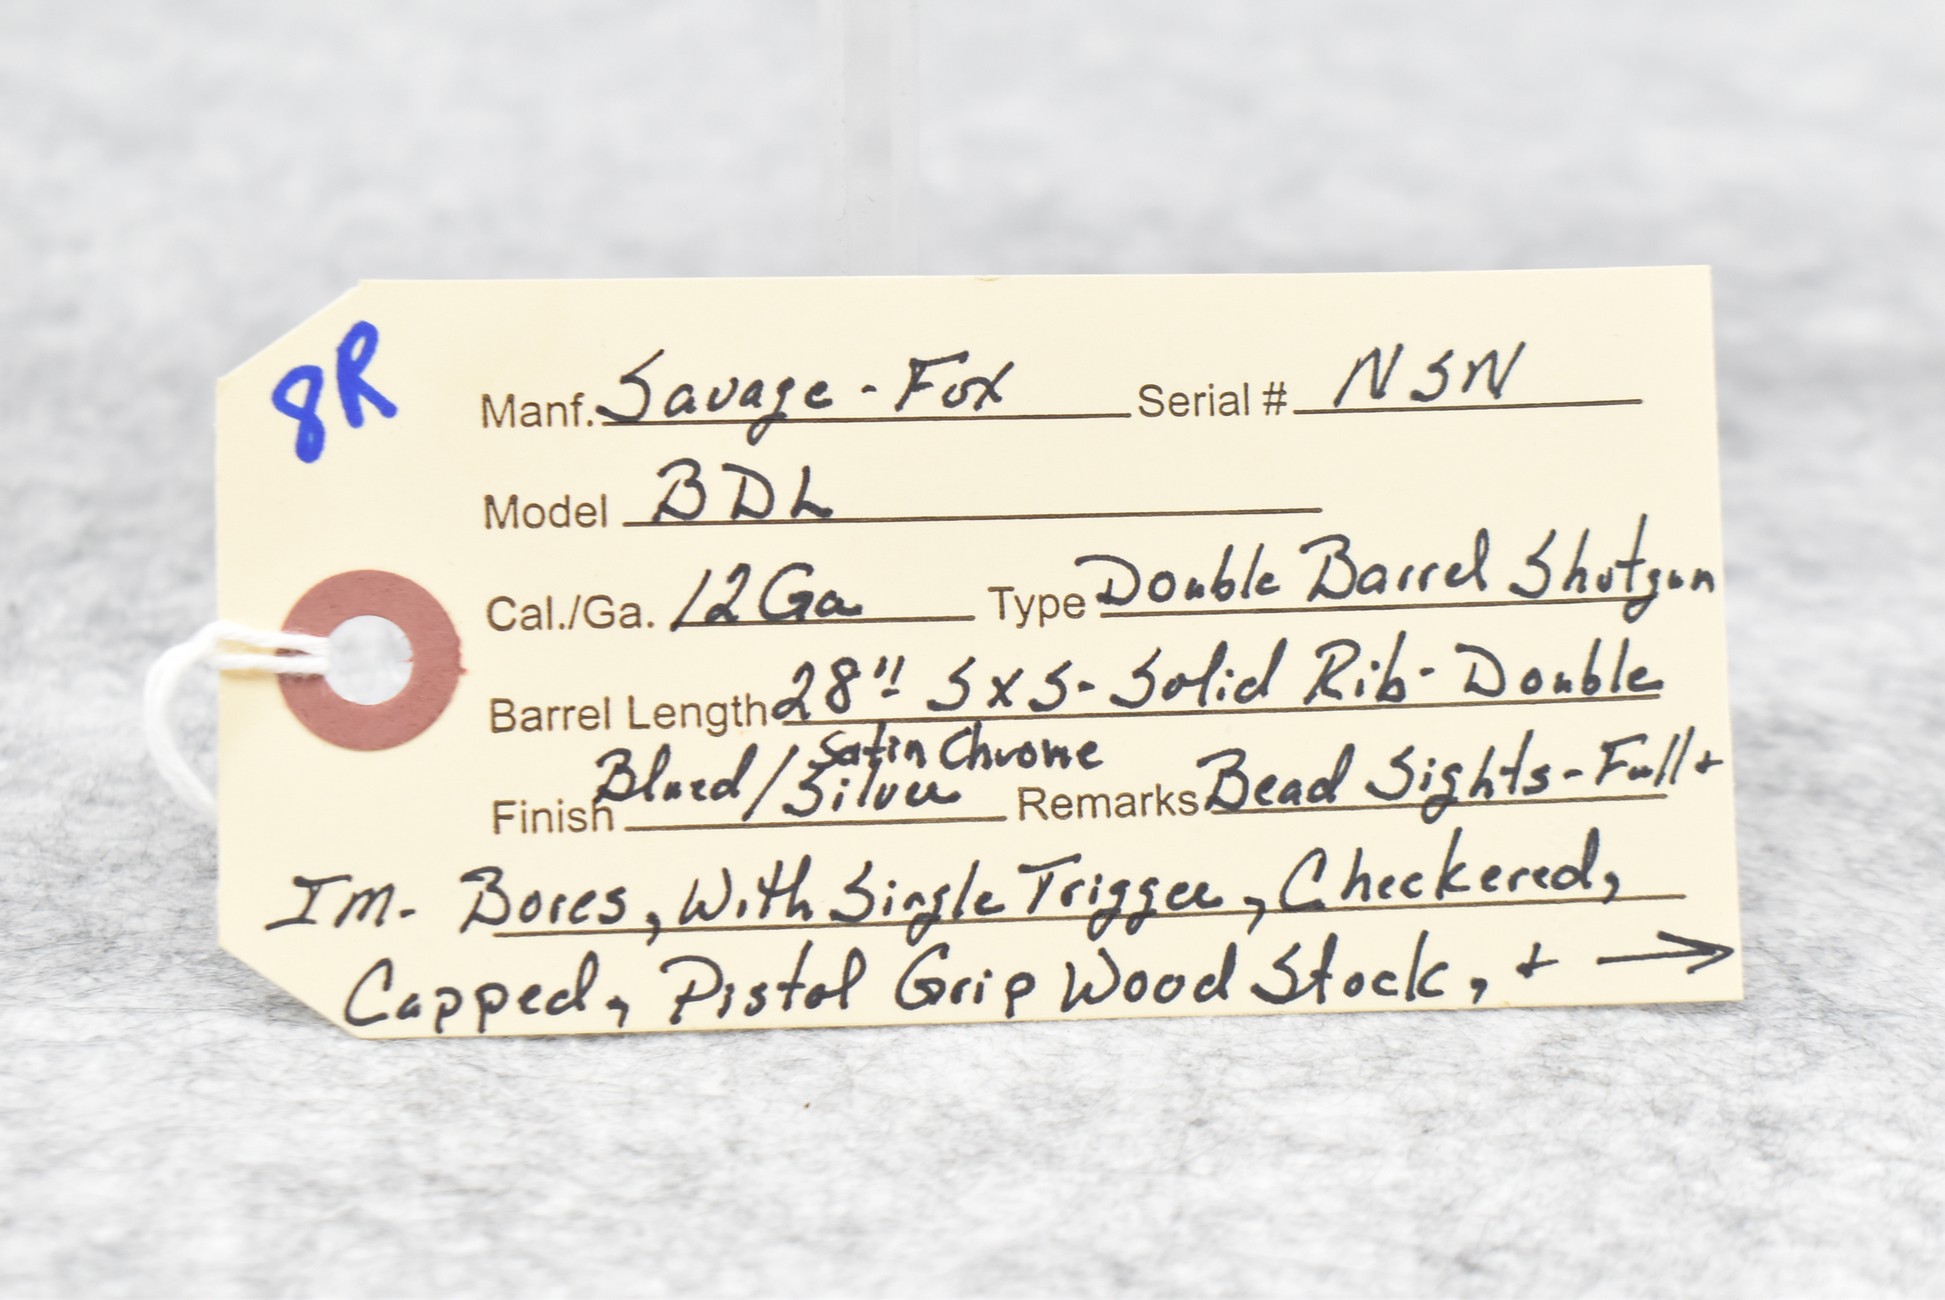 8R
Manf. Savage - Fox Serial # NSN
Model BDL
Cal./Ga. 12 Ga Type Double Barrel Shotgun
Barrel Length 28" SxS - Solid Rib - Double
Satin Chrome
Finish Blued/Silver Remarks Bead Sights - Full +
IM. Bores, With Single Trigger, Checkered,
Capped, Pistol Grip Wood Stock, + →